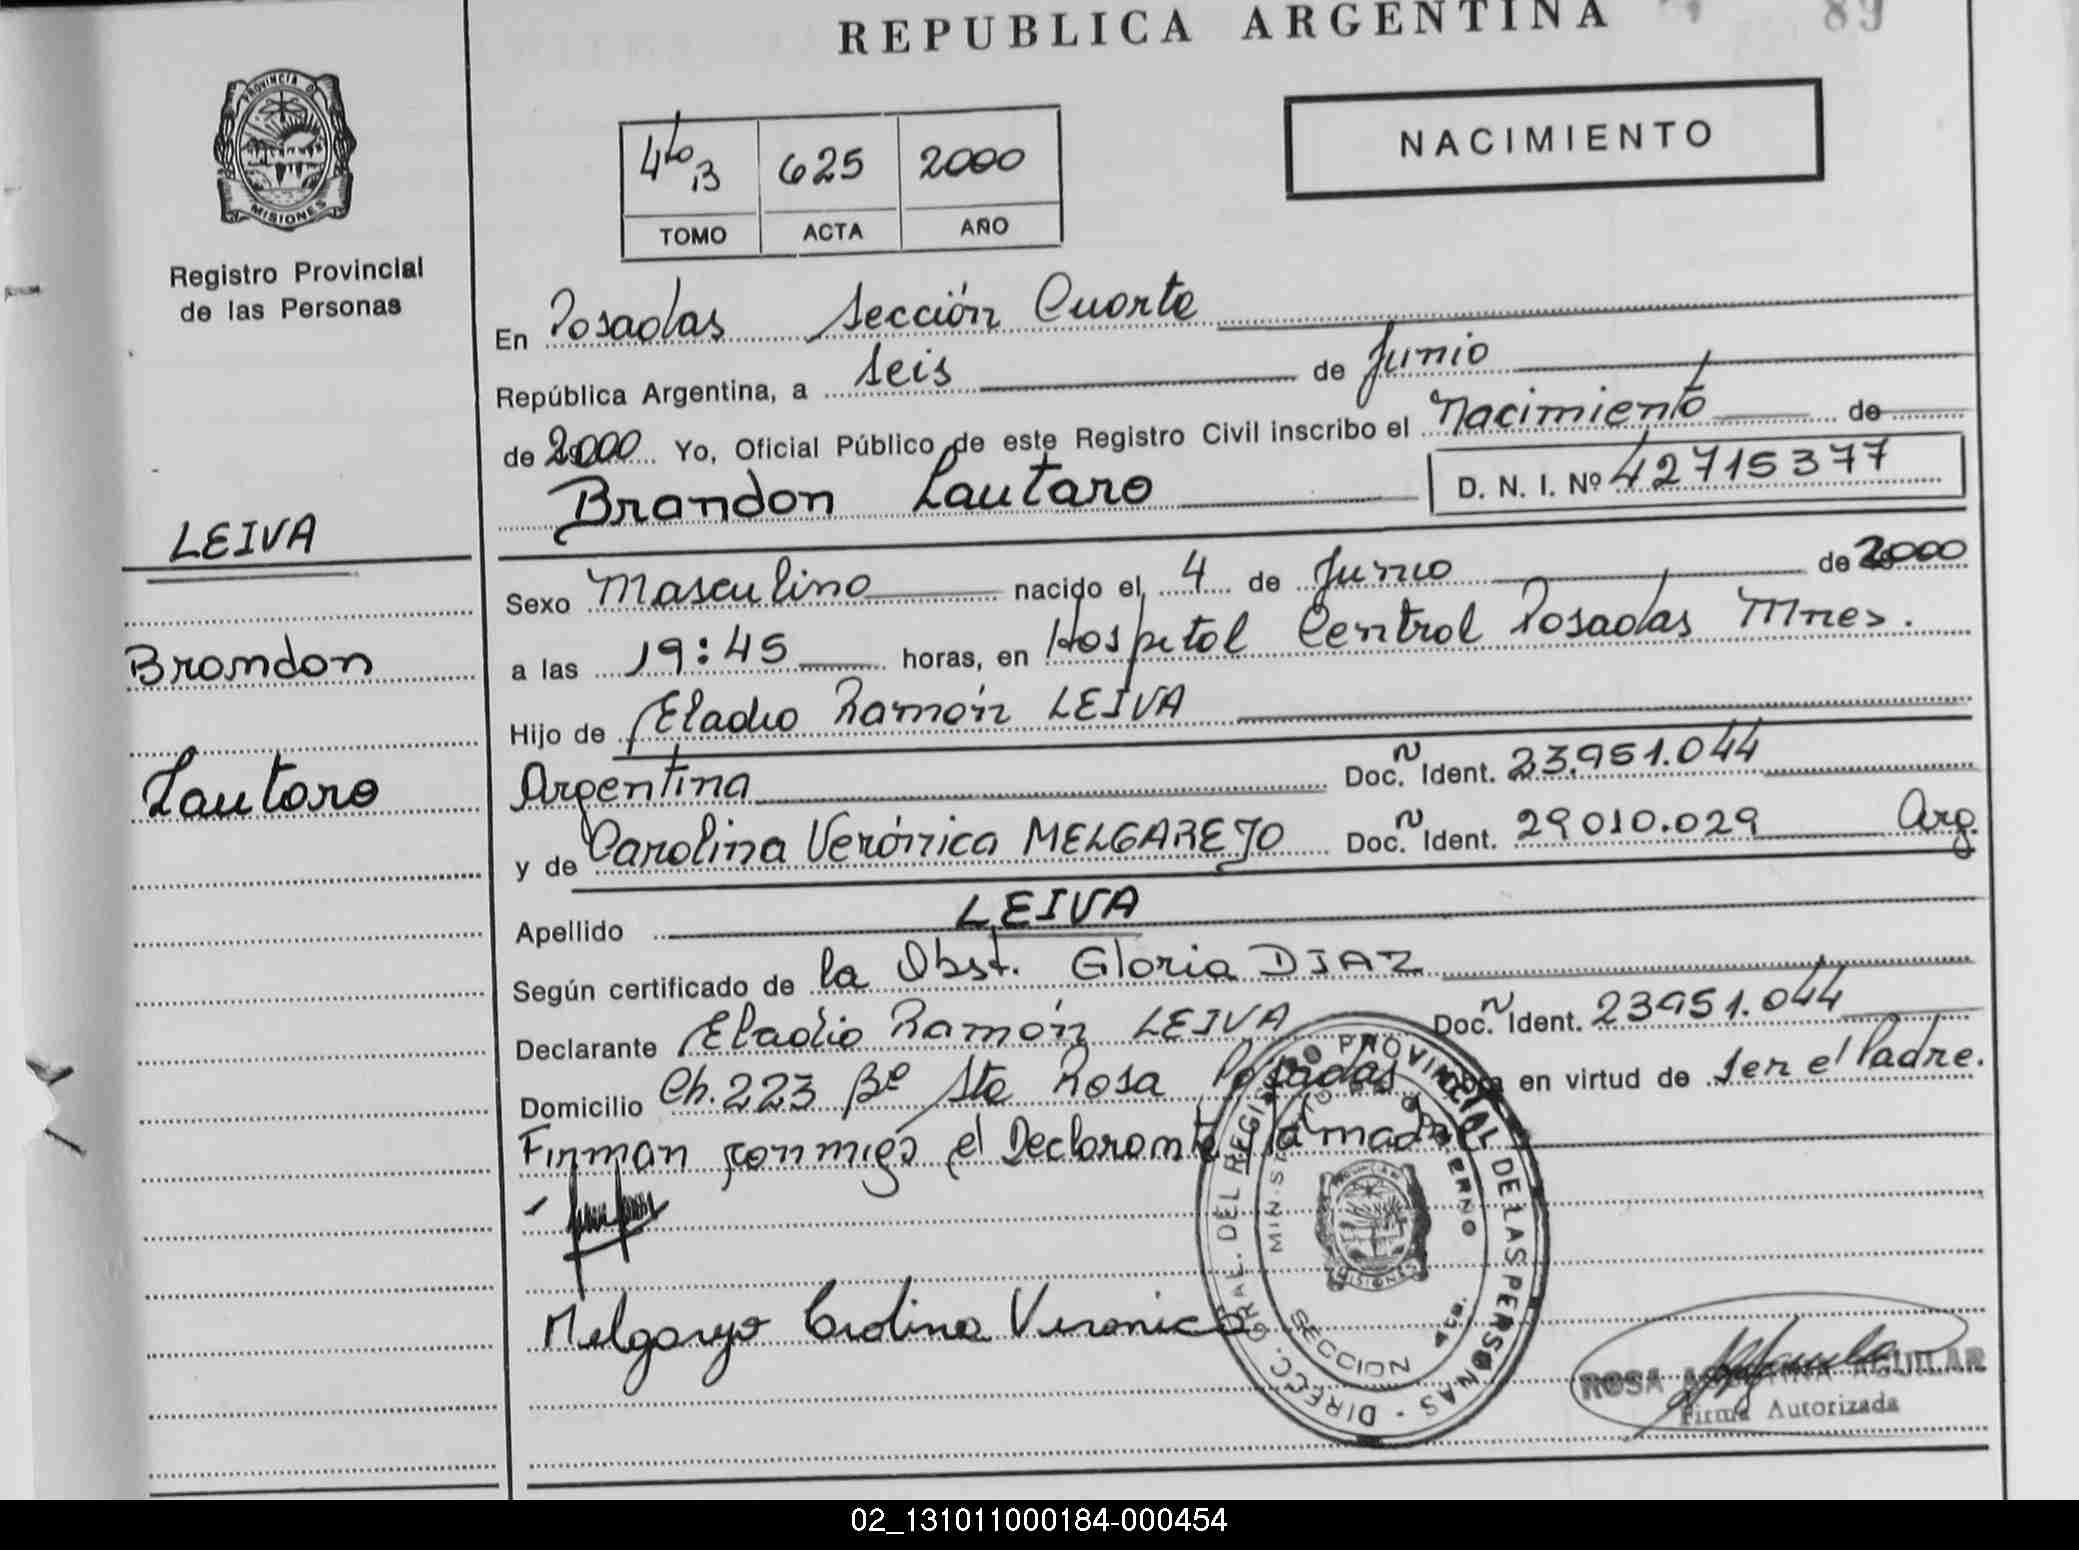 REPUBLICA ARGENTINA
89
PROVINCIA DE
MISIONES
Registro Provincial
de las Personas
NACIMIENTO
4to B 625 2000
TOMO ACTA AÑO
En Posadas Sección Cuarta
República Argentina, a seis de Junio
de 2000 Yo, Oficial Público de este Registro Civil inscribo el Nacimiento de
Brandon Lautaro D. N. I. Nº 42715377
LEIVA
Brandon
Lautaro
Sexo Masculino nacido el 4 de Junio de 2000
a las 19:45 horas, en Hospital Central Posadas Mnes.
Hijo de Eladio Ramón LEIVA
Argentina Doc. Ident. 23.951.044
y de Carolina Verónica MELGAREJO Doc. Ident. 29010.029 Arg.
Apellido LEIVA
Según certificado de la Obst. Gloria DIAZ
Declarante Eladio Ramón LEIVA Doc. Ident. 23951.044
Domicilio Ch. 223 Bº Sta Rosa Posadas en virtud de ser el Padre.
Firman conmigo el Declarante y la madre
Melgarejo Carolina Veronica
DIRECC. GRAL. DEL REGISTRO PROVINCIAL DE LAS PERSONAS
MINISTERIO DE GOBIERNO
SECCION 4ta.
MISIONES
ROSA AGUILAR
Firma Autorizada
02_131011000184-000454